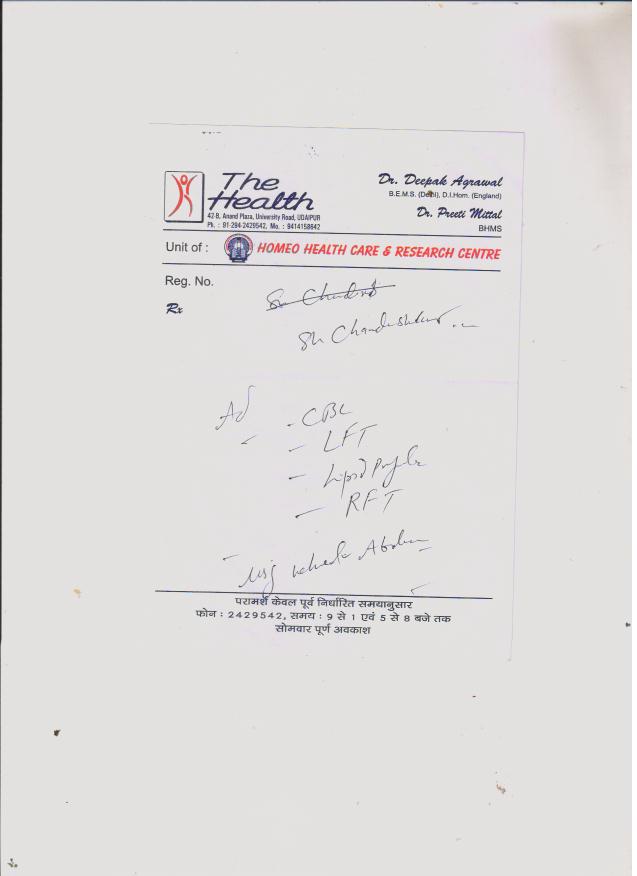 The
Health
42-B, Anand Plaza, University Road, UDAIPUR
Ph. : 91-294-2429542, Mo. : 9414158842
Dr. Deepak Agrawal
B.E.M.S. (Delhi), D.I.Hom. (England)
Dr. Preeti Mittal
BHMS
Unit of : HOMEO HEALTH CARE & RESEARCH CENTRE
Reg. No.
Rx
Sh
Ad - CBC
- LFT
- Lipid Profile
- RFT
- USG whole Abdomen
परामर्श केवल पूर्व निर्धारित समयानुसार
फोन : 2429542, समय : 9 से 1 एवं 5 से 8 बजे तक
सोमवार पूर्ण अवकाश